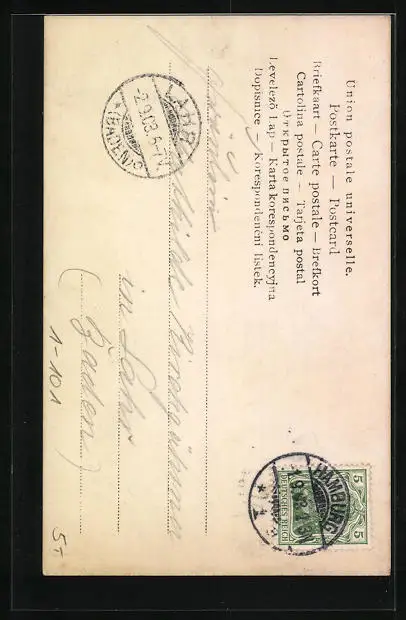 Union postale universelle.
Postkarte — Postcard
Briefkaart — Carte postale — Brefkort
Cartolina postale — Tarjeta postal
Открытое письмо
Levelező Lap — Karta korespondencyjna
Dopisnice — Korespondenční lístek.
5 5
DEUTSCHES REICH
HAMBURG
LAHR
-2.9.03.6-7V.
*(BADEN)*
Fräulein
in Lahr
(Baden)
1-101
5-